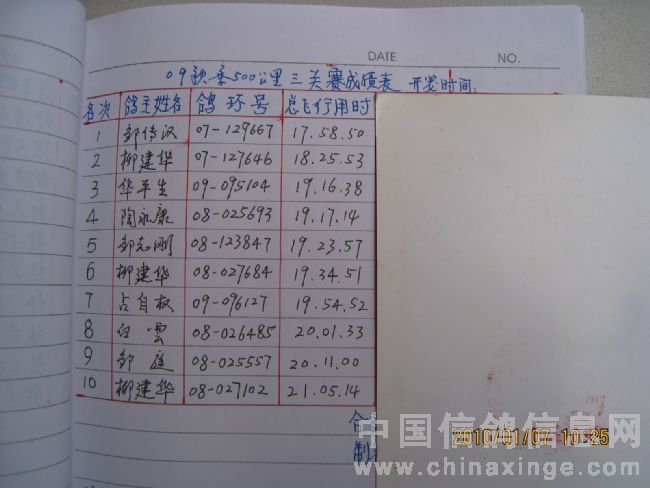 DATE NO.
09秋季500公里三关赛成绩表 开笼时间:
名次 鸽主姓名 鸽环号 总飞行用时
1 邹传汉 07-129667 17.58.50
2 柳建华 07-127646 18.25.53
3 华平生 09-095104 19.16.38
4 陶永康 08-025693 19.17.14
5 邹志刚 08-123847 19.23.57
6 柳建华 08-027684 19.34.51
7 占自权 09-096127 19.54.52
8 白雲 08-026485 20.01.33
9 邹庭 08-025557 20.11.00
10 柳建华 08-027102 21.05.14
制
中国信鸽信息网
2010/01/07 10:25
www.chinaxinge.com